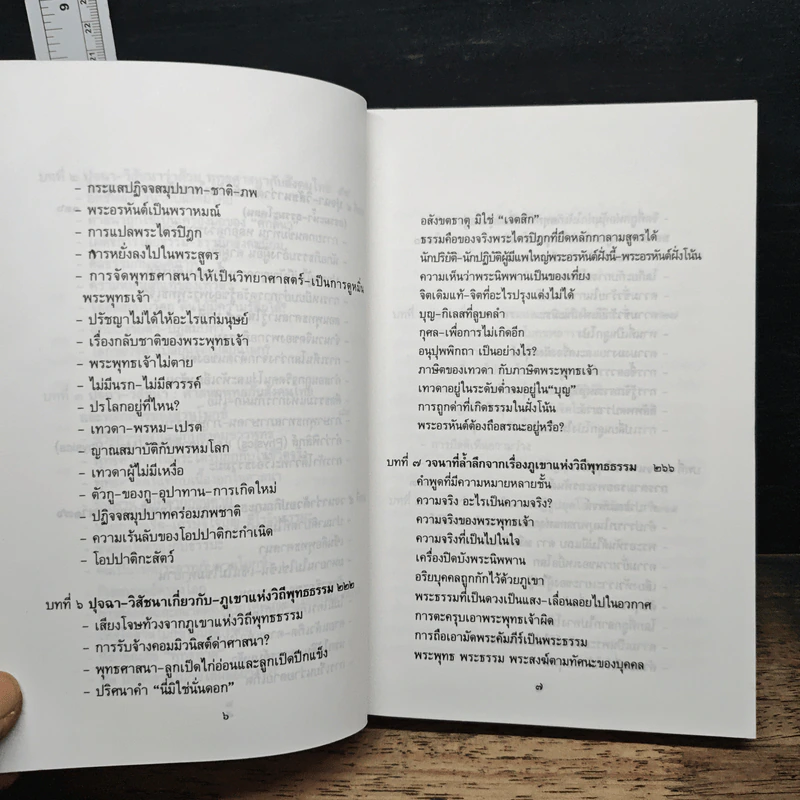 9
22
21
- กระแสปฏิจจสมุปบาท-ชาติ-ภพ
- พระอรหันต์เป็นพราหมณ์
- การแปลพระไตรปิฎก
- การหยั่งลงไปในพระสูตร
- การจัดพุทธศาสนาให้เป็นวิทยาศาสตร์-เป็นการดูหมิ่น
พระพุทธเจ้า
- ปรัชญาไม่ได้ให้อะไรแก่มนุษย์
- เรื่องกลับชาติของพระพุทธเจ้า
- พระพุทธเจ้าไม่ตาย
- ไม่มีนรก-ไม่มีสวรรค์
- ปรโลกอยู่ที่ไหน?
- เทวดา-พรหม-เปรต
- ญาณสมาบัติกับพรหมโลก
- เทวดาผู้ไม่มีเหงื่อ
- ตัวกู-ของกู-อุปาทาน-การเกิดใหม่
- ปฏิจจสมุปบาทคร่อมภพชาติ
- ความเร้นลับของโอปปาติกะกำเนิด
- โอปปาติกะสัตว์
บทที่ ๖ ปุจฉา-วิสัชนาเกี่ยวกับ-ภูเขาแห่งวิถีพุทธธรรม ๒๒๒
- เสียงโจษท้วงจากภูเขาแห่งวิถีพุทธธรรม
- การรับจ้างคอมมิวนิสต์ด่าศาสนา?
- พุทธศาสนา-ลูกเป็ดไก่อ่อนและลูกเป็ดปีกแข็ง
- ปริศนาคำ “นี่มิใช่นั่นดอก”
๖
อสังขตธาตุ มิใช่ “เจตสิก”
ธรรมคือของจริงพระไตรปิฎกที่ยึดหลักกาลามสูตรได้
นักปริยัติ-นักปฏิบัติผู้มีแพใหญ่พระอรหันต์ฝั่งนี้-พระอรหันต์ฝั่งโน้น
ความเห็นว่าพระนิพพานเป็นของเที่ยง
จิตเดิมแท้-จิตที่อะไรปรุงแต่งไม่ได้
บุญ-กิเลสที่ลูบคลำ
กุศล-เพื่อการไม่เกิดอีก
อนุปุพพิกถา เป็นอย่างไร?
ภาษิตของเทวดา กับภาษิตพระพุทธเจ้า
เทวดาอยู่ในระดับต่ำจมอยู่ใน“บุญ”
การถูกด่าที่เกิดธรรมในฝั่งโน้น
พระอรหันต์ต้องถือสรณะอยู่หรือ?
บทที่ ๗ วจนาที่ล้ำลึกจากเรื่องภูเขาแห่งวิถีพุทธธรรม ๒๖๖
คำพูดที่มีความหมายหลายชั้น
ความจริง อะไรเป็นความจริง?
ความจริงของพระพุทธเจ้า
ความจริงที่เป็นไปในใจ
เครื่องปิดบังพระนิพพาน
อริยบุคคลถูกกักไว้ด้วยภูเขา
พระธรรมที่เป็นดวงเป็นแสง-เลื่อนลอยไปในอวกาศ
การตะครุบเอาพระพุทธเจ้าผิด
การถือเอามัดพระคัมภีร์เป็นพระธรรม
พระพุทธ พระธรรม พระสงฆ์ตามทัศนะของบุคคล
๗